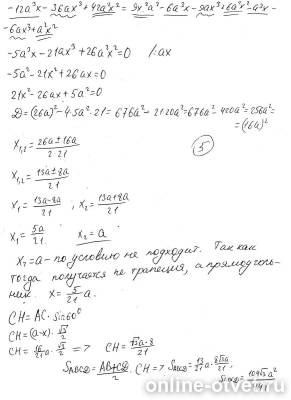 -12a³x-36ax³+42a²x²=9x²a²-6a³x-9ax³+6a²x²-a³x-
-6ax³+a²x²
-5a³x-21ax³+26a²x²=0 |:ax
-5a²-21x²+26ax=0
21x²-26ax+5a²=0
D=(26a)²-4·5a²·21=676a²-
=256a²=
=(16a)²
x₁,₂=26a±16a/2·21
5
x₁,₂=13a±8a/21
x₁=13a-8a/21, x₂=13a+8a/21
x₁=5a/21 x₂=a
x₂=a-по условию не подходит. Так как
тогда получается не трапеция, а прямоуголь-
ник. x=5/21a.
CH=AC·sin60°
CH=(a-x)·√3/2
CH=16/21a·√3/2 => CH=√3a·8/21
SABCD=AB+CD/2·CH => SABCD=13/21a·8√3a/21
SABCD=104√3a²/441
online-otvet.ru